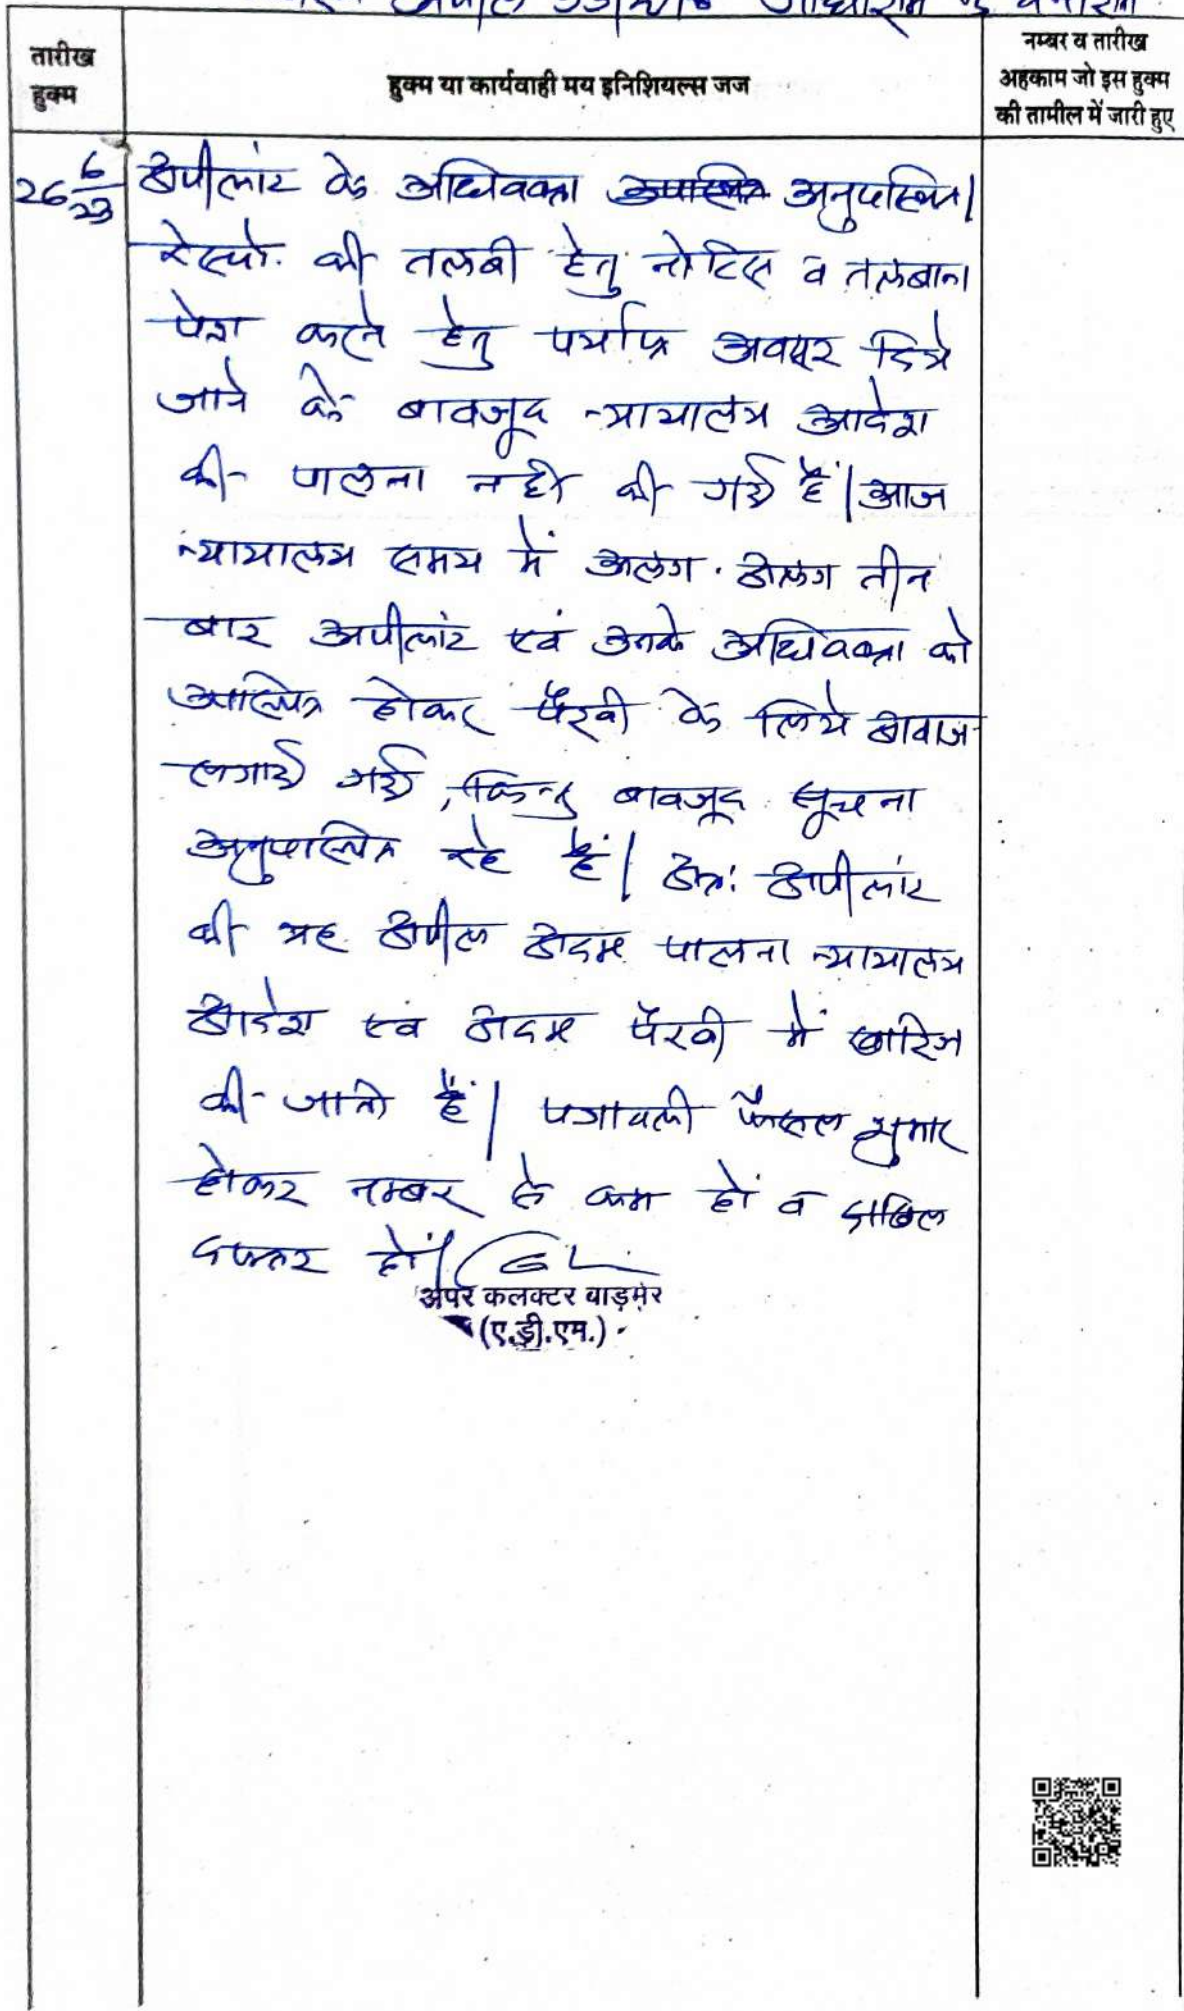 अपील
तारीख
हुक्म
हुक्म या कार्यवाही मय इनिशियल्स जज
नम्बर व तारीख
अहकाम जो इस हुक्म
की तामील में जारी हुए
26 6/23
अपीलांट के अधिवक्ता उपस्थित अनुपस्थित।
रेस्पो. की तलबी हेतु नोटिस व तलबाना
पेश करने हेतु पर्याप्त अवसर दिये
जाने के बावजूद न्यायालय आदेश
की पालना नहीं की गई है। आज
न्यायालय समय में अलग-अलग तीन
बार अपीलांट एवं उनके अधिवक्ता को
उपस्थित होकर पैरवी के लिये आवाज
लगाई गई, किन्तु बावजूद सूचना
अनुपस्थित रहे हैं। अतः अपीलांट
की यह अपील अदम पालना न्यायालय
आदेश एवं अदम पैरवी में खारिज
की जाती है। पत्रावली फैसल शुमार
होकर नम्बर से कम हों व दाखिल
दफ्तर हों।
अपर कलक्टर बाड़मेर
(ए.डी.एम.)